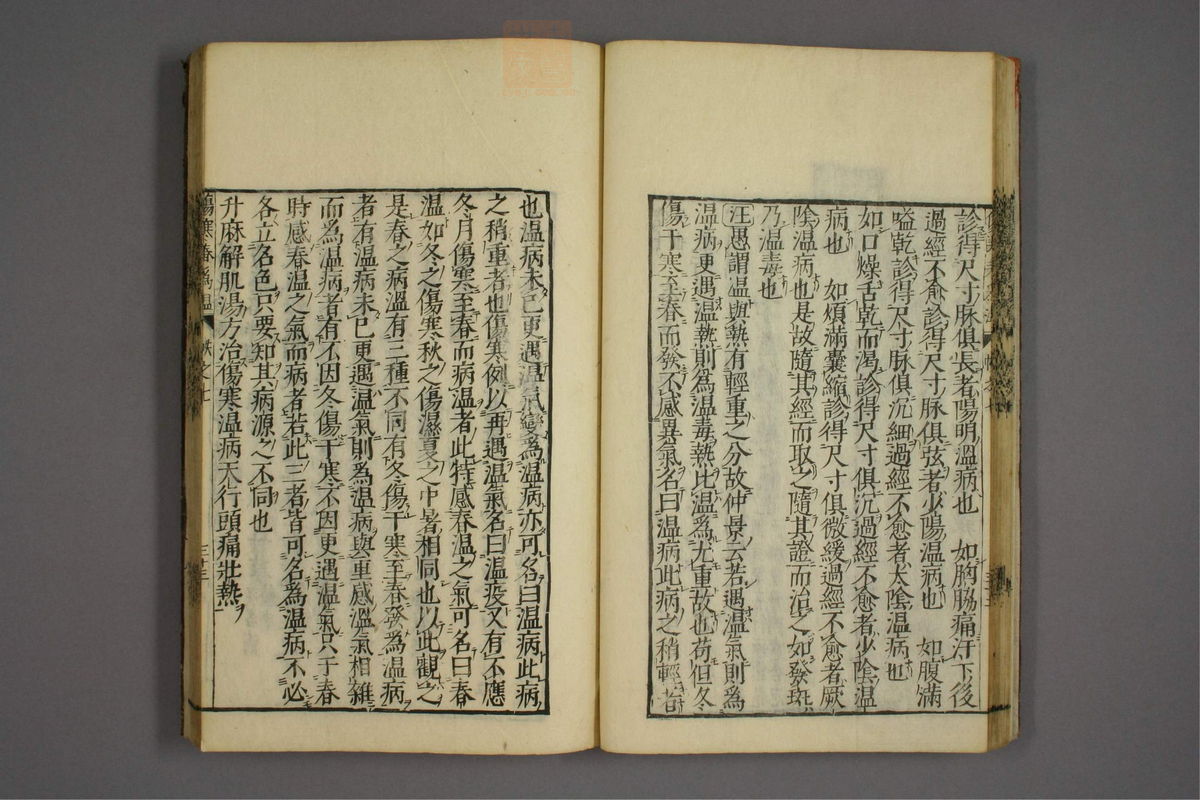 診得尺寸脉俱長者陽明溫病也　如胸脇痛汗下後
過經不愈診得尺寸脉俱弦者少陽温病也　如腹滿
嗌乾診得尺寸脉俱沉細過經不愈者太陰温病也
如口燥舌乾而渴診得尺寸俱沉過經不愈者少陰温
病也　如煩滿囊縮診得尺寸俱微緩過經不愈者厥
陰温病也是故隨其經而取之隨其證而治之如發斑
乃温毒也
汪愚謂温與熱有輕重之分故仲景云若遇温氣則爲
温病更遇温熱則爲温毒熱比温爲尤重故也苟但冬
傷于寒至春而發不感異氣名曰温病此病之稍輕者
也温病未已更遇温氣變爲温病亦可名曰温病此病
之稍重者也傷寒例以再遇温氣名曰温疫又有不應
冬月傷寒至春而病温者此特感春温之氣可名曰春
温如冬之傷寒秋之傷濕夏之中暑相同也以此觀之
是春之病溫有三種不同有冬傷于寒至春發爲温病
者有温病未已更遇温氣則爲温病與重感溫氣相雜
而爲温病者有不因冬傷于寒不因更遇温氣只于春
時感春温之氣而病者若此三者皆可名爲温病不必
各立名色只要知其病源之不同也
升麻解肌湯方治傷寒温病天行頭痛壯熱
傷寒春爲温　帙之七　三十三